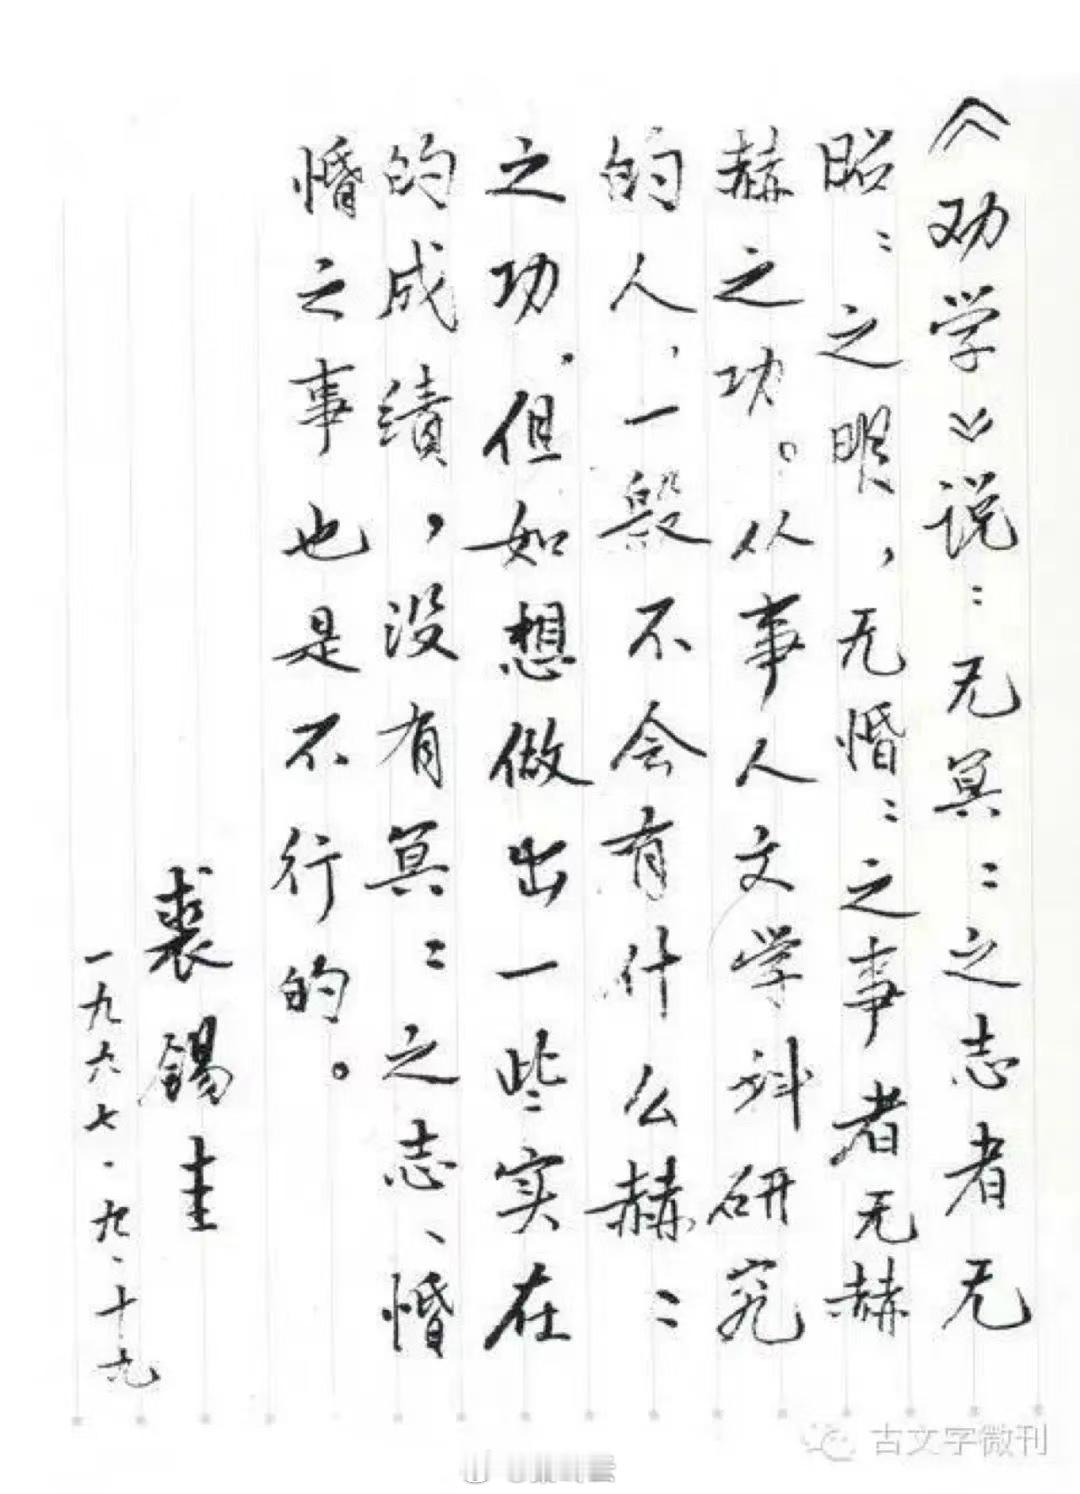 《劝学》说:无冥〻之志者无
昭〻之明,无惛〻之事者无赫
赫之功。从事人文学科研究
的人,一般不会有什么赫〻
之功。但如想做出一些实在
的成绩,没有冥〻之志、惛
惛之事也是不行的。
裘锡圭
一九六七.九.十九
古文字微刊